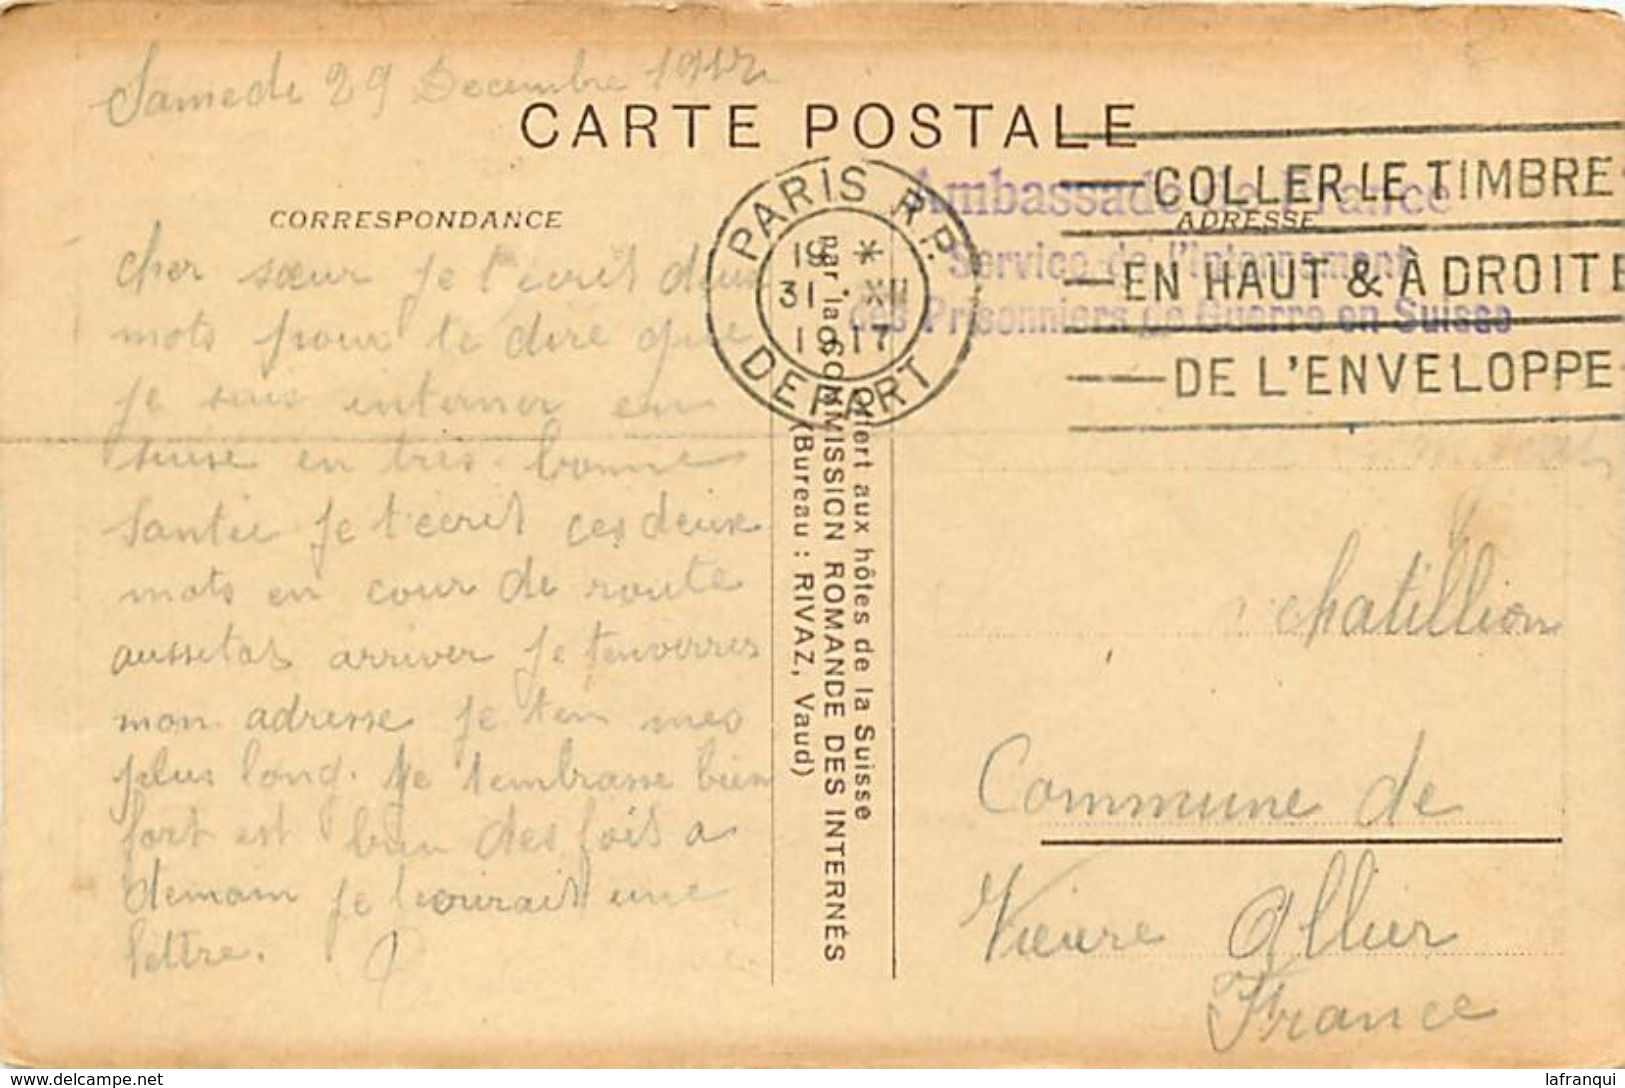 Samedi 29 Decembre 1917
CARTE POSTALE
CORRESPONDANCE
ADRESSE
PARIS R.P.
19 *
31 XII
1917
DEPART
COLLER LE TIMBRE
EN HAUT & À DROITE
DE L'ENVELOPPE
Ambassade de France
Service de l'Internement
des Prisonniers de Guerre en Suisse
cher sœur je t'ecrit deux
mots pour te dire que
je suis interner en
suise en tres bonne
Santee je t'ecrit ces deux
mots en cour de route
aussetot arriver je t'enverrer
mon adresse je ten mes
plus long. je t'embrasse bien
fort est bien des fois a
demain je t'ecrirait une
lettre.
Offert aux hôtes de la Suisse
par la COMMISSION ROMANDE DES INTERNÉS
(Bureau : RIVAZ, Vaud)
chatillion
Commune de
Vieure Allier
France
lafranqui